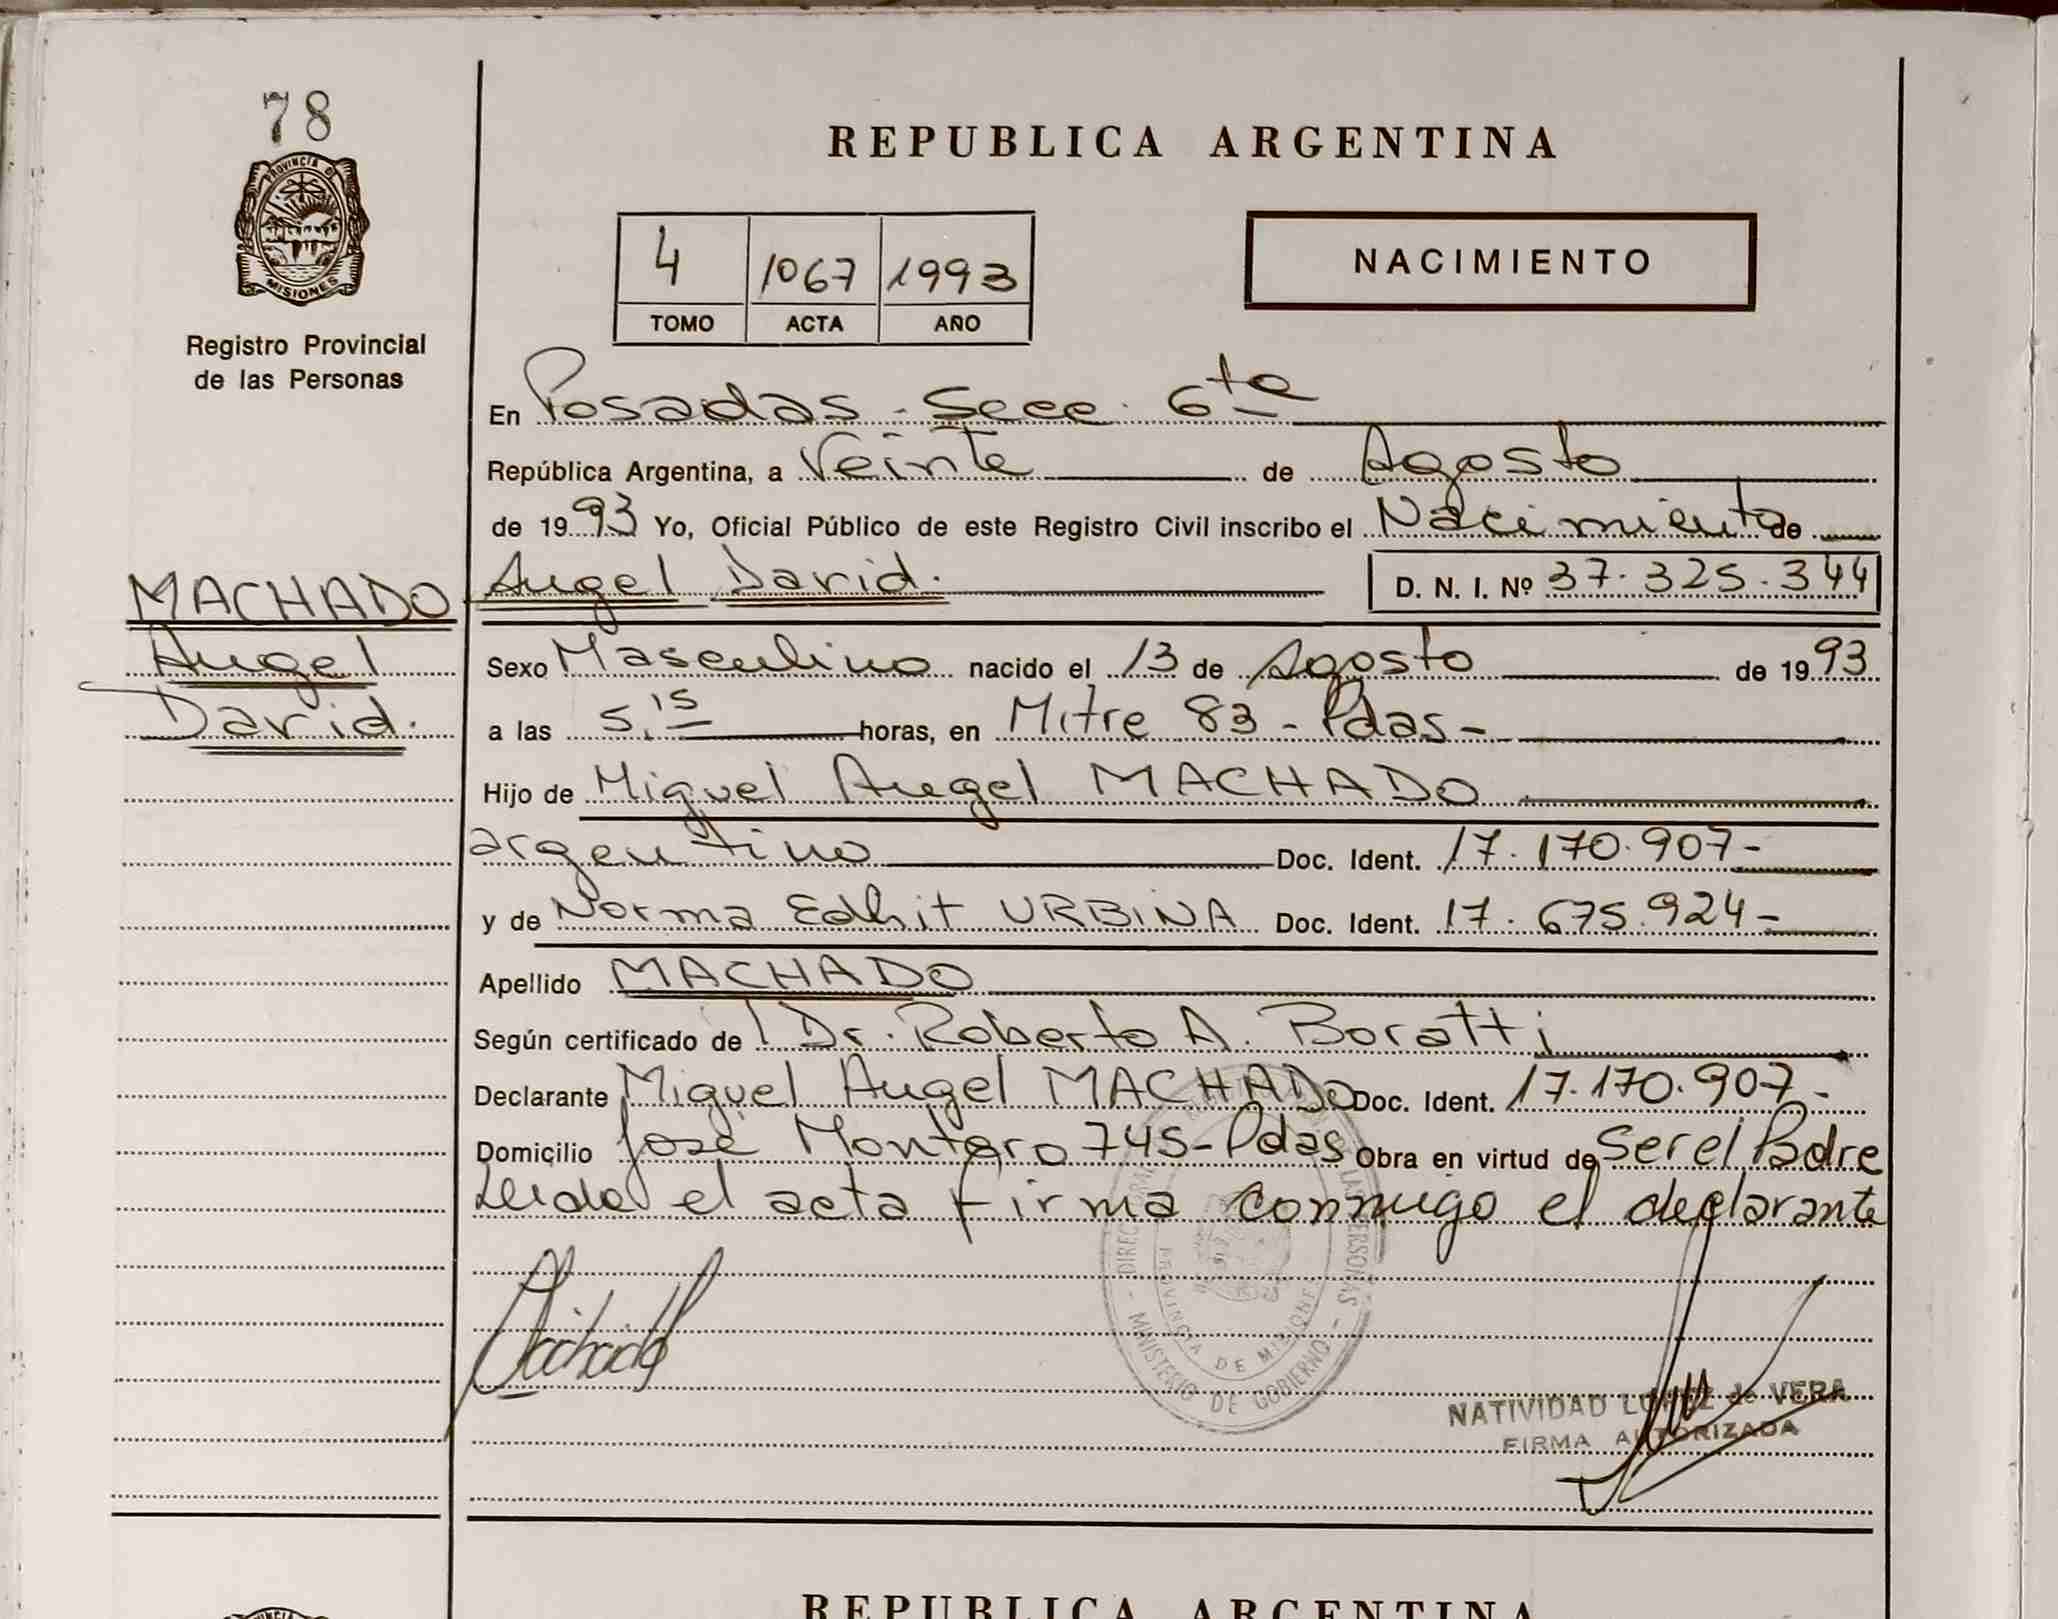 78
PROVINCIA DE
MISIONES
Registro Provincial
de las Personas
MACHADO
Angel
David.
REPUBLICA ARGENTINA
4 1067 1993
TOMO ACTA AÑO
NACIMIENTO
En Posadas - Secc. 6ta
República Argentina, a Veinte de Agosto
de 1993 Yo, Oficial Público de este Registro Civil inscribo el Nacimiento de
Angel David. D. N. I. Nº 37.325.344
Sexo Masculino nacido el 13 de Agosto de 1993
a las 5,15 horas, en Mitre 83 - Pdas-
Hijo de Miguel Angel MACHADO
argentino Doc. Ident. 17.170.907-
y de Norma Edhit URBINA Doc. Ident. 17.675.924-
Apellido MACHADO
Según certificado de Dr. Roberto A. Boratti
Declarante Miguel Angel MACHADO Doc. Ident. 17.170.907-
Domicilio José Montero 745-Pdas Obra en virtud de Ser el Padre
Leida el acta firma conmigo el declarante
Machado
PROVINCIA DE MISIONES
MINISTERIO DE GOBIERNO
NATIVIDAD LOPEZ de VERA
FIRMA AUTORIZADA
REPUBLICA ARGENTINA